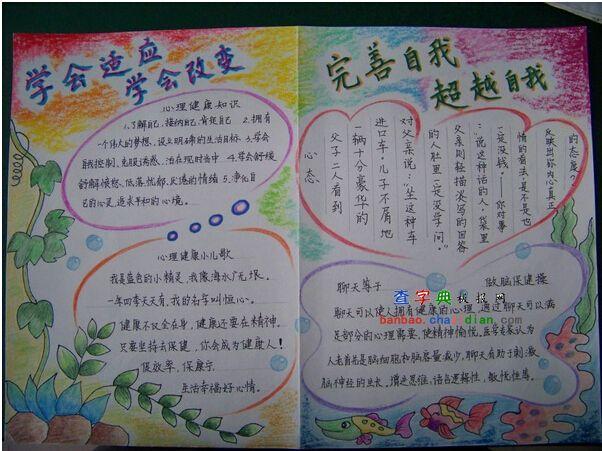 学会适应
学会改变
心理健康知识
1.了解自己,接纳自己,肯定自己 2.拥有
一个伟大的梦想,设立明确的生活目标 3.学会
自我控制,克服诱惑,活在现时当中 4.学会舒缓
的情绪 5.净化自
己的心灵,追求平和的心境。
心理健康小儿歌
我是蓝色的小精灵,我像海水广无垠。
一年四季天天有,我的名字叫恒心。
健康不仅全在身,健康还要在精神。
只要坚持去保健,你会成为健康人!
促效率,保康宁
生活幸福好心情。
完善自我
超越自我
心态
父子二人看到
一辆十分豪华的
进口车,儿子不屑地
对父亲说:“坐这种车
的人肚里一定没学问。”
父亲则轻描淡写的回答
:“说这种话的人,袋里
一定没钱。”——你对事
情的看法,是不是也
反映出你内心真正
的态度?
聊天等于
做脑保健操
聊天可以使人拥有健康的心理,通过聊天可以满
足部分的心理需要,使精神愉悦。医学家认为
人老首先是脑细胞和脑容量减少,聊天有助于刺激
脑神经的生长,增进思维、语言逻辑性,敏捷性等。
查字典板报网
banbao.chazidian.com